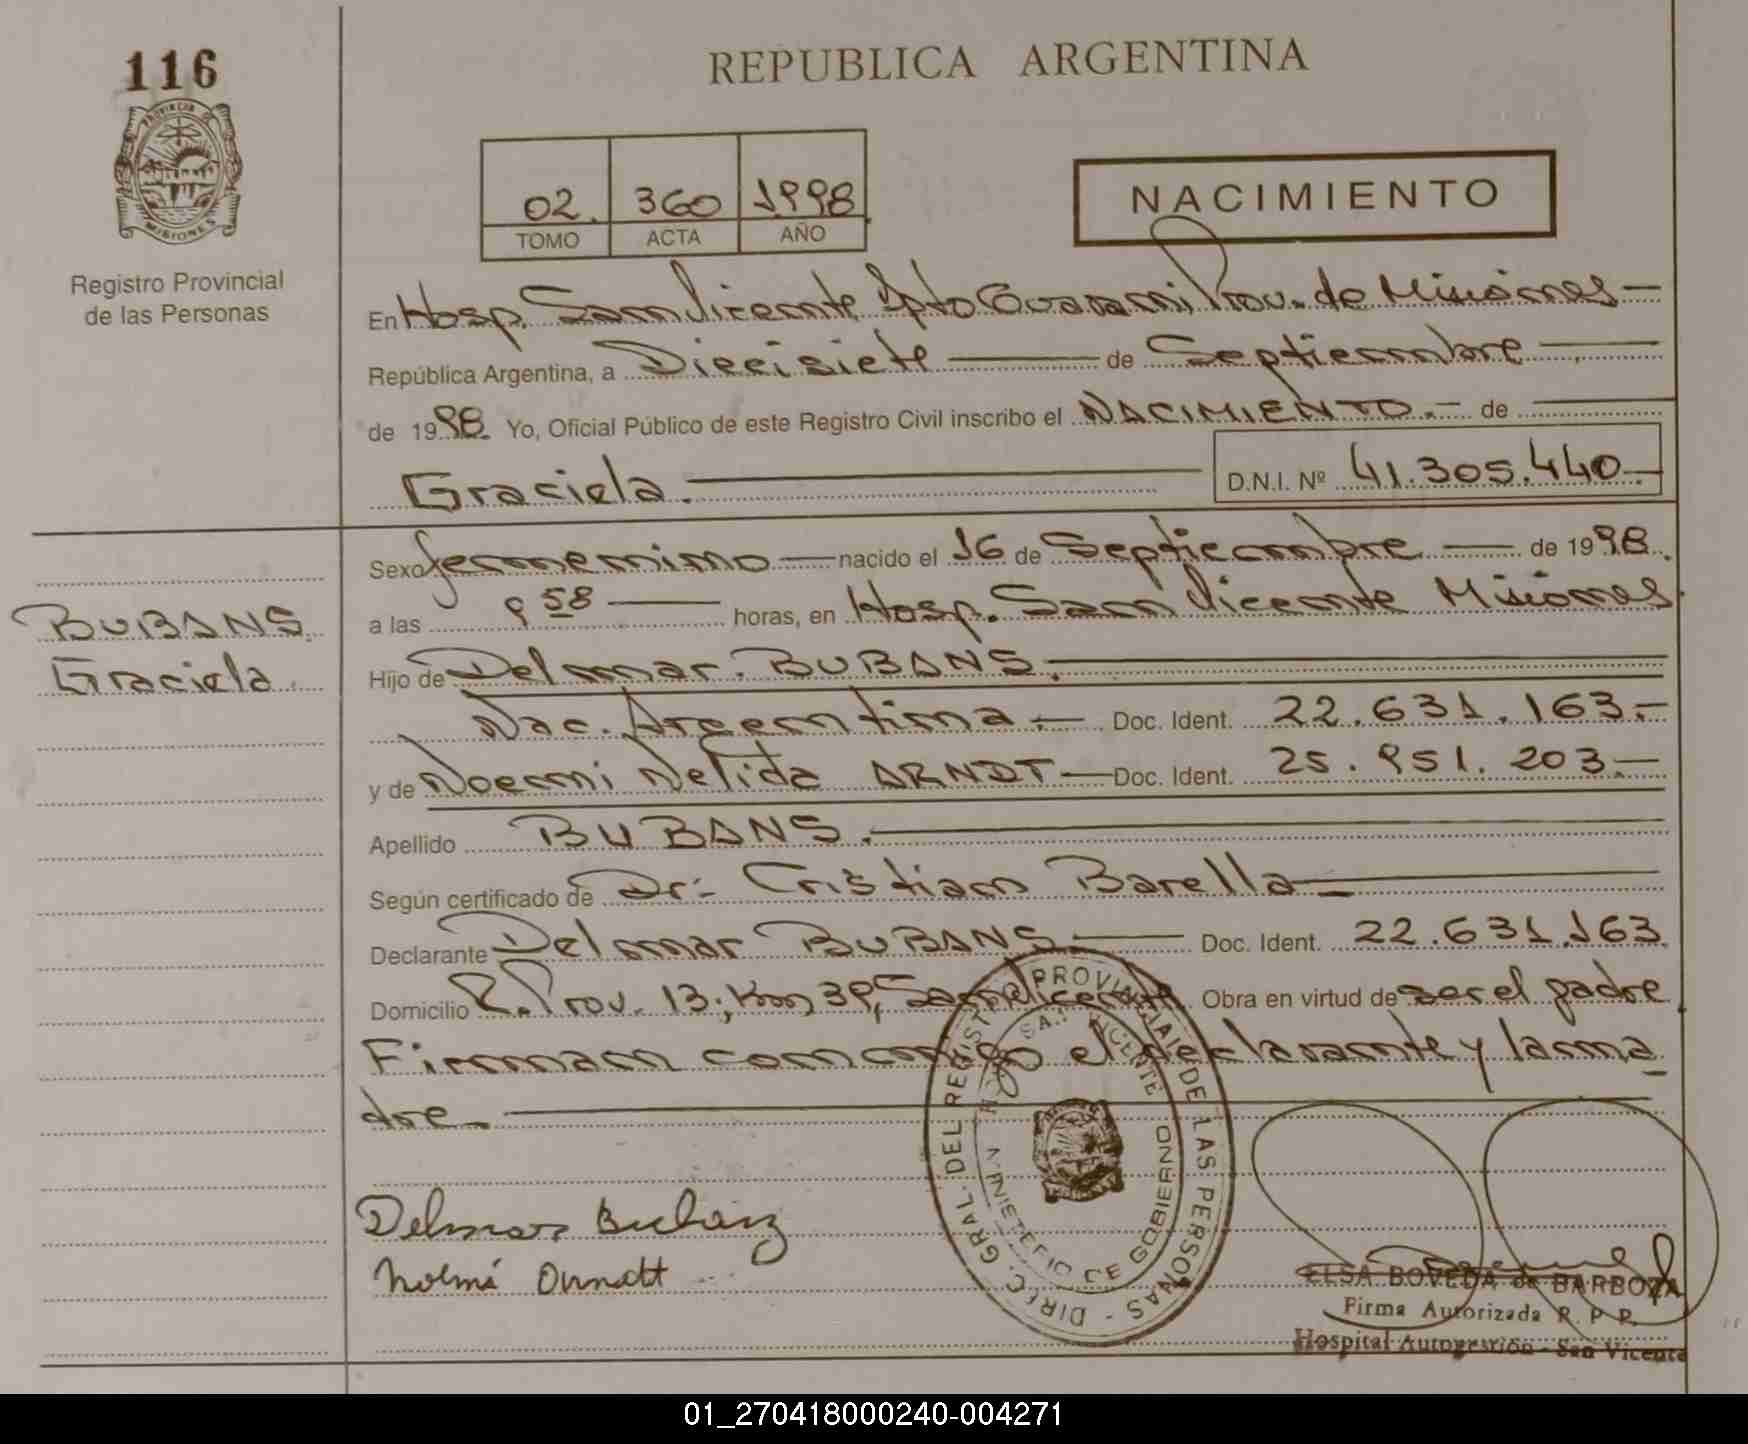 116
REPUBLICA ARGENTINA
PROVINCIA DE
MISIONES
Registro Provincial
de las Personas
02. 360 1998
TOMO ACTA AÑO
NACIMIENTO
En Hosp. San Vicente, Dpto Guarani Prov. de Misiones
República Argentina, a Diecisiete de Septiembre
de 1998. Yo, Oficial Público de este Registro Civil inscribo el NACIMIENTO.- de
Graciela. D.N.I. Nº 41.305.440.
Sexo femenino nacido el 16 de Septiembre de 1998.
a las 9 58 horas, en Hosp. San Vicente Misiones
BUBANS.
Graciela.
Hijo de Delmar. BUBANS.
Nac. Argentina.- Doc. Ident. 22.631.163.-
y de Noemi Nelida ARNDT Doc. Ident. 25.951.203.-
Apellido BUBANS.
Según certificado de Dr:- Cristian Barella
Declarante Delmar BUBANS. Doc. Ident. 22.631.163.
Domicilio R. Prov. 13; Km 39, San Vicente. Obra en virtud de ser el padre
Firman conmigo el declarante y la ma
dre.
DIREC. GRAL. DEL REGIST. PROVINCIAL DE LAS PERSONAS -
MINISTERIO DE GOBIERNO
Delmar
ELSA BOVEDA de BARBOZA
Firma Autorizada R. P. P.
Hospital Autogestión - San Vicente
01_270418000240-004271